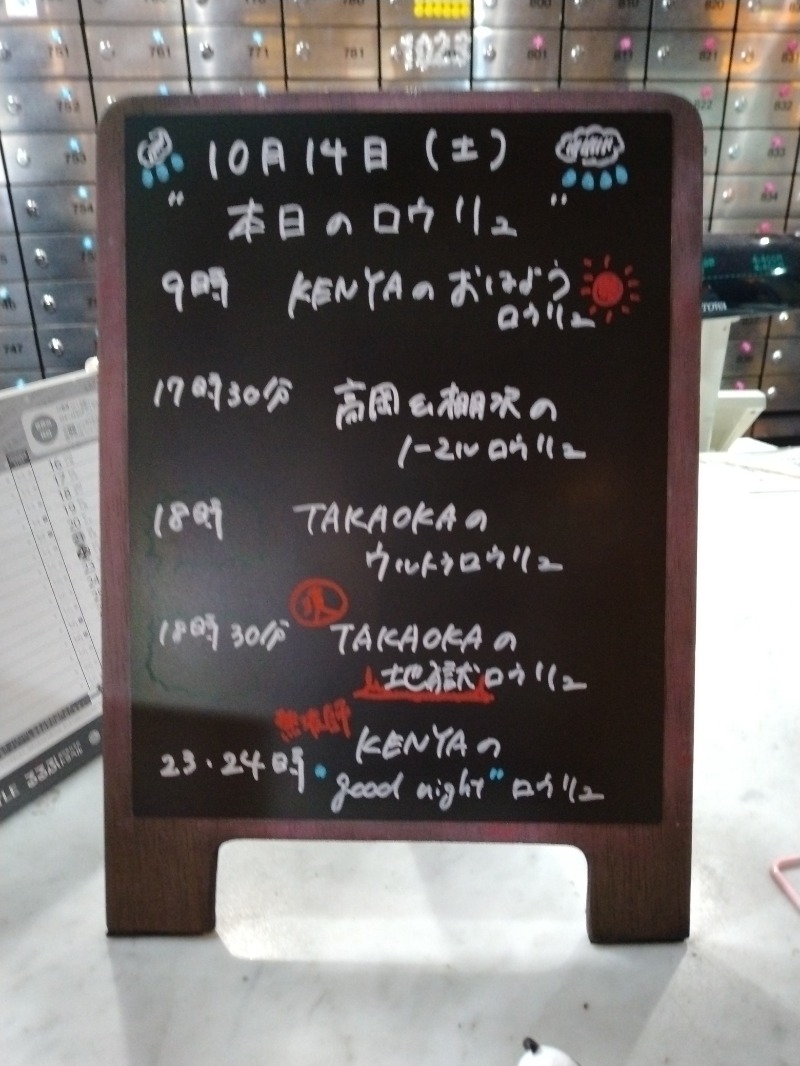 10月14日(土)
"本日のロウリュ"
9時 KENYAのおはよう
ロウリュ
17時30分 高岡&棚沢の
ノーマルロウリュ
18時 TAKAOKAの
ウルトラロウリュ
18時30分 TAKAOKAの
地獄ロウリュ
熱波師
23・24時 KENYAの
"good night"ロウリュ
TOWA
1023
751
761
771
781
801
752
753
754
747
822
832
833
834